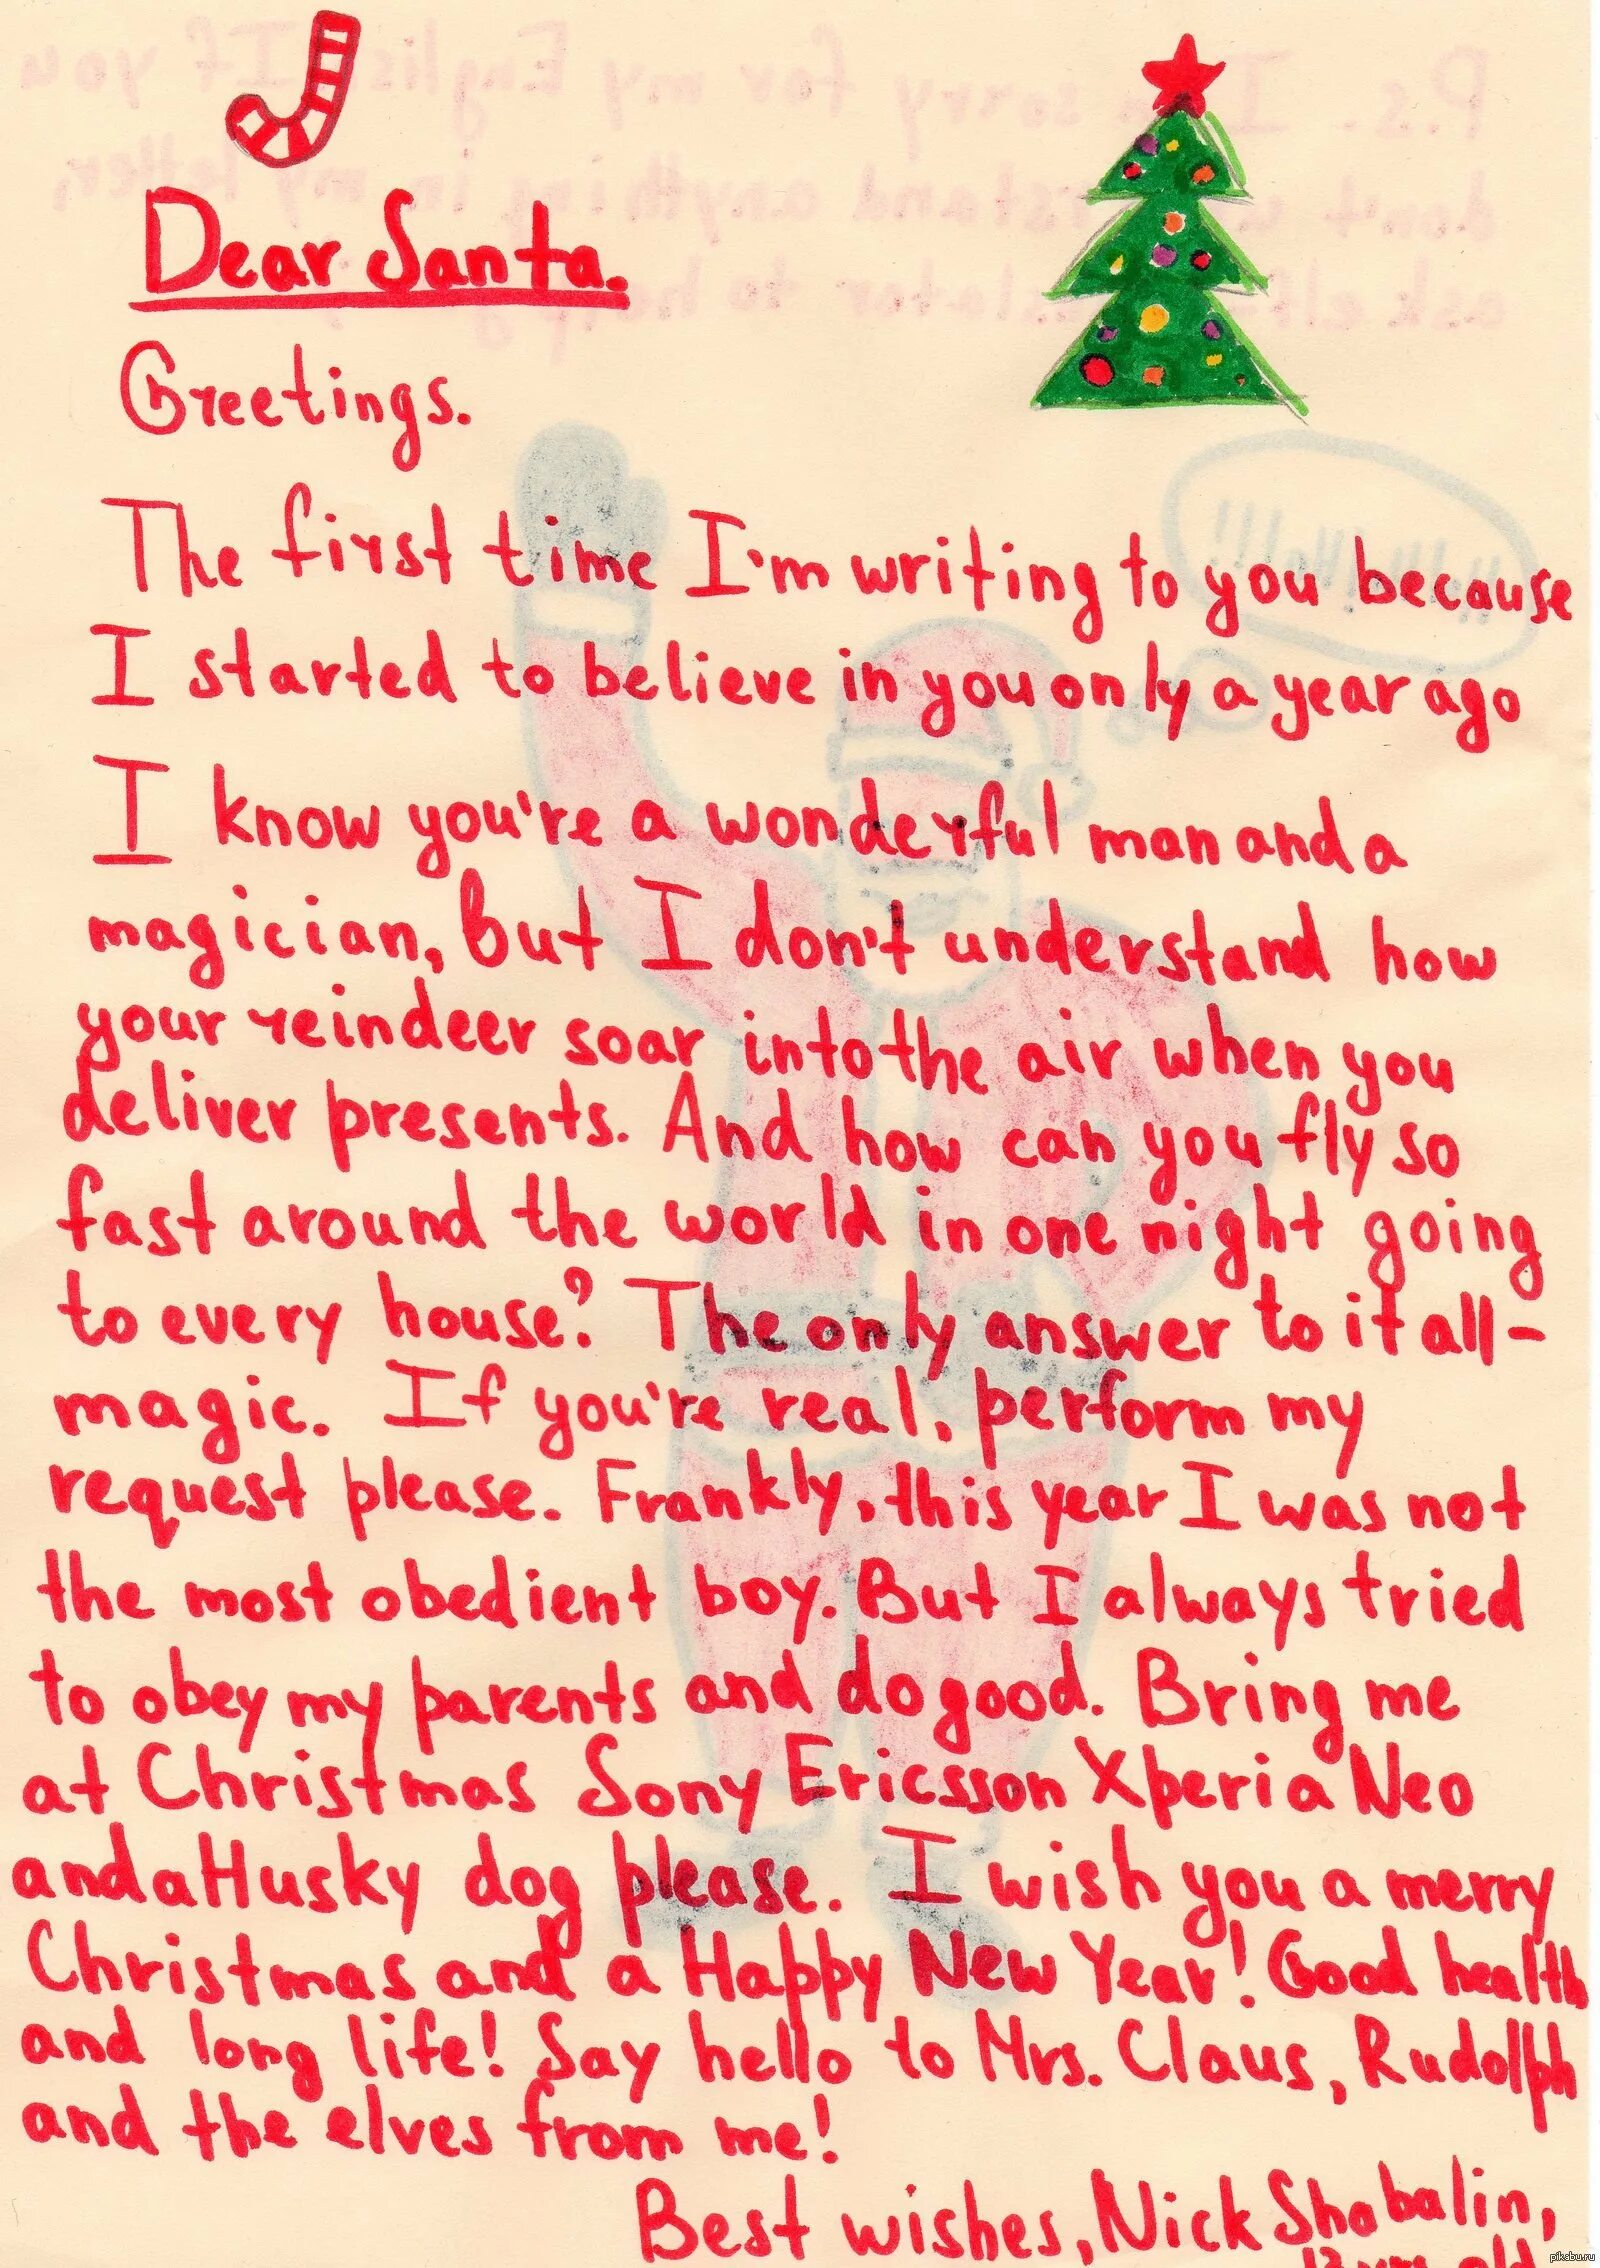 Dear Santa.
Greetings.
The first time I'm writing to you because
I started to believe in you only a year ago
I know you're a wonderful man and a
magician, but I don't understand how
your reindeer soar into the air when you
deliver presents. And how can you fly so
fast around the world in one night going
to every house? The only answer to it all-
magic. If you're real, perform my
request please. Frankly, this year I was not
the most obedient boy. But I always tried
to obey my parents and do good. Bring me
at Christmas Sony Ericsson Xperia Neo
and a Husky dog please. I wish you a merry
Christmas and a Happy New Year! Good health
and long life! Say hello to Mrs. Claus, Rudolph
and the elves from me!
Best wishes, Nick Shabalin,
pikabu.ru